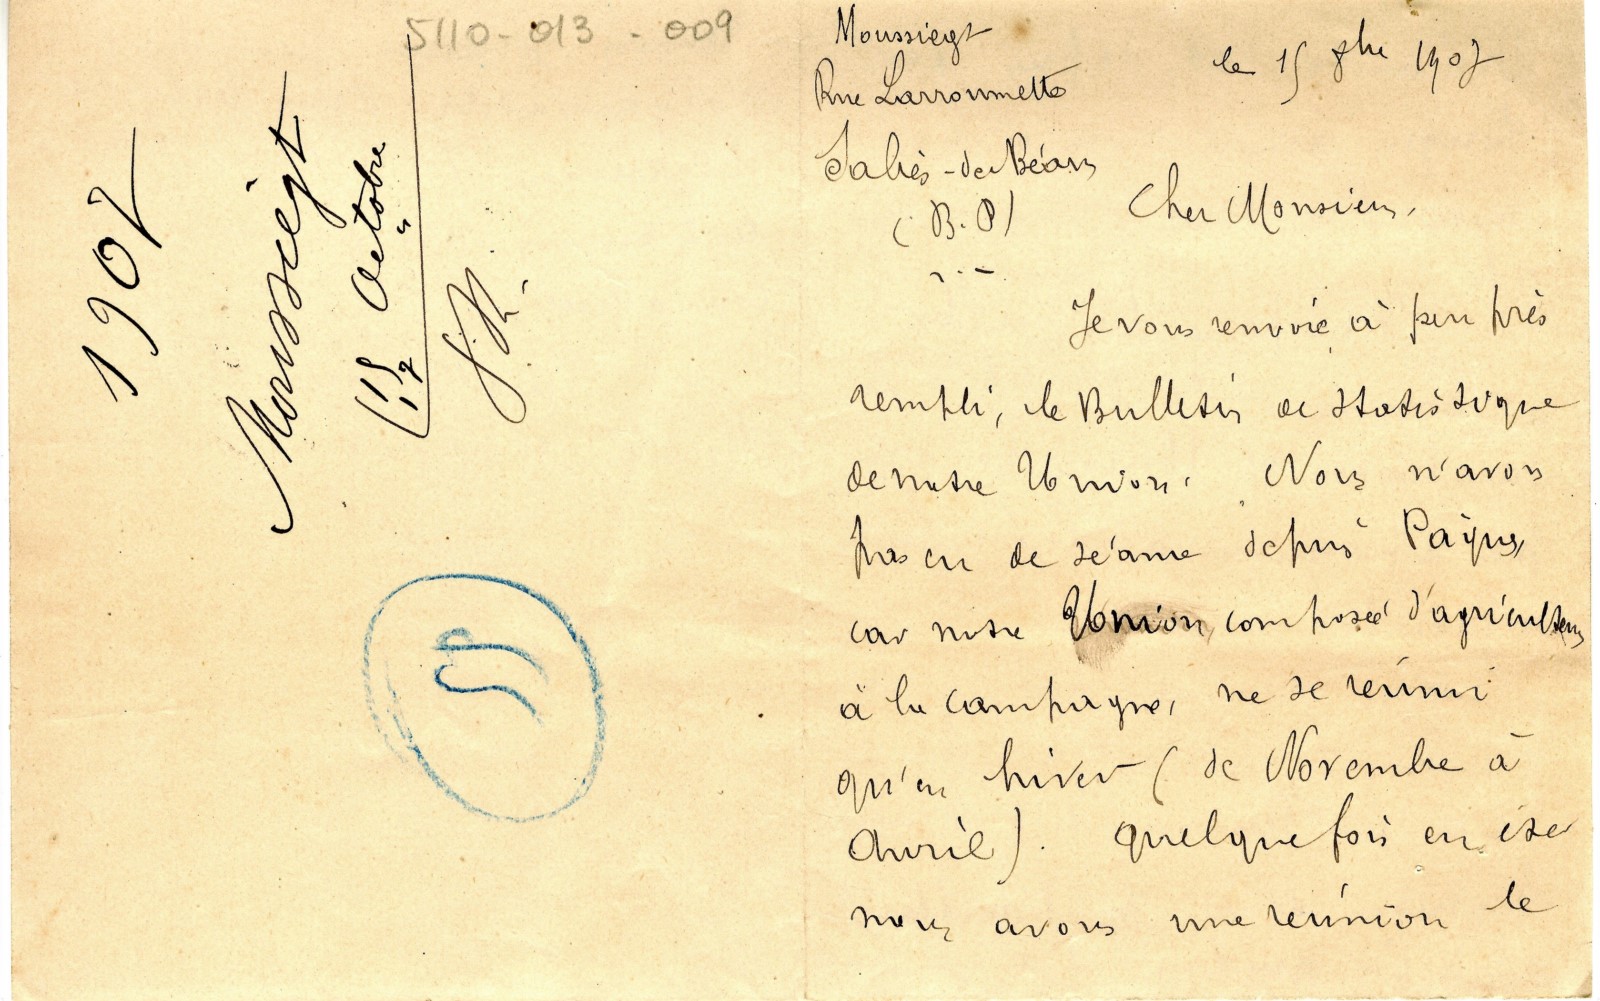 5110-013-009
1907
Moussiegt
(15 Octobre
Moussiegt
Rue Larroumette
Salies-de-Béarn
(B.P)
le 15 8bre 1907
Cher Monsieur,
Je vous renvoie à peu près
rempli, le Bulletin de statistique
de notre Union. Nous n'avons
pas eu de séance depuis Pâques,
car notre Union, composée d'agriculteurs
à la campagne, ne se réunit
qu'en hiver (de Novembre à
Avril). Quelquefois en été
nous avons une réunion le